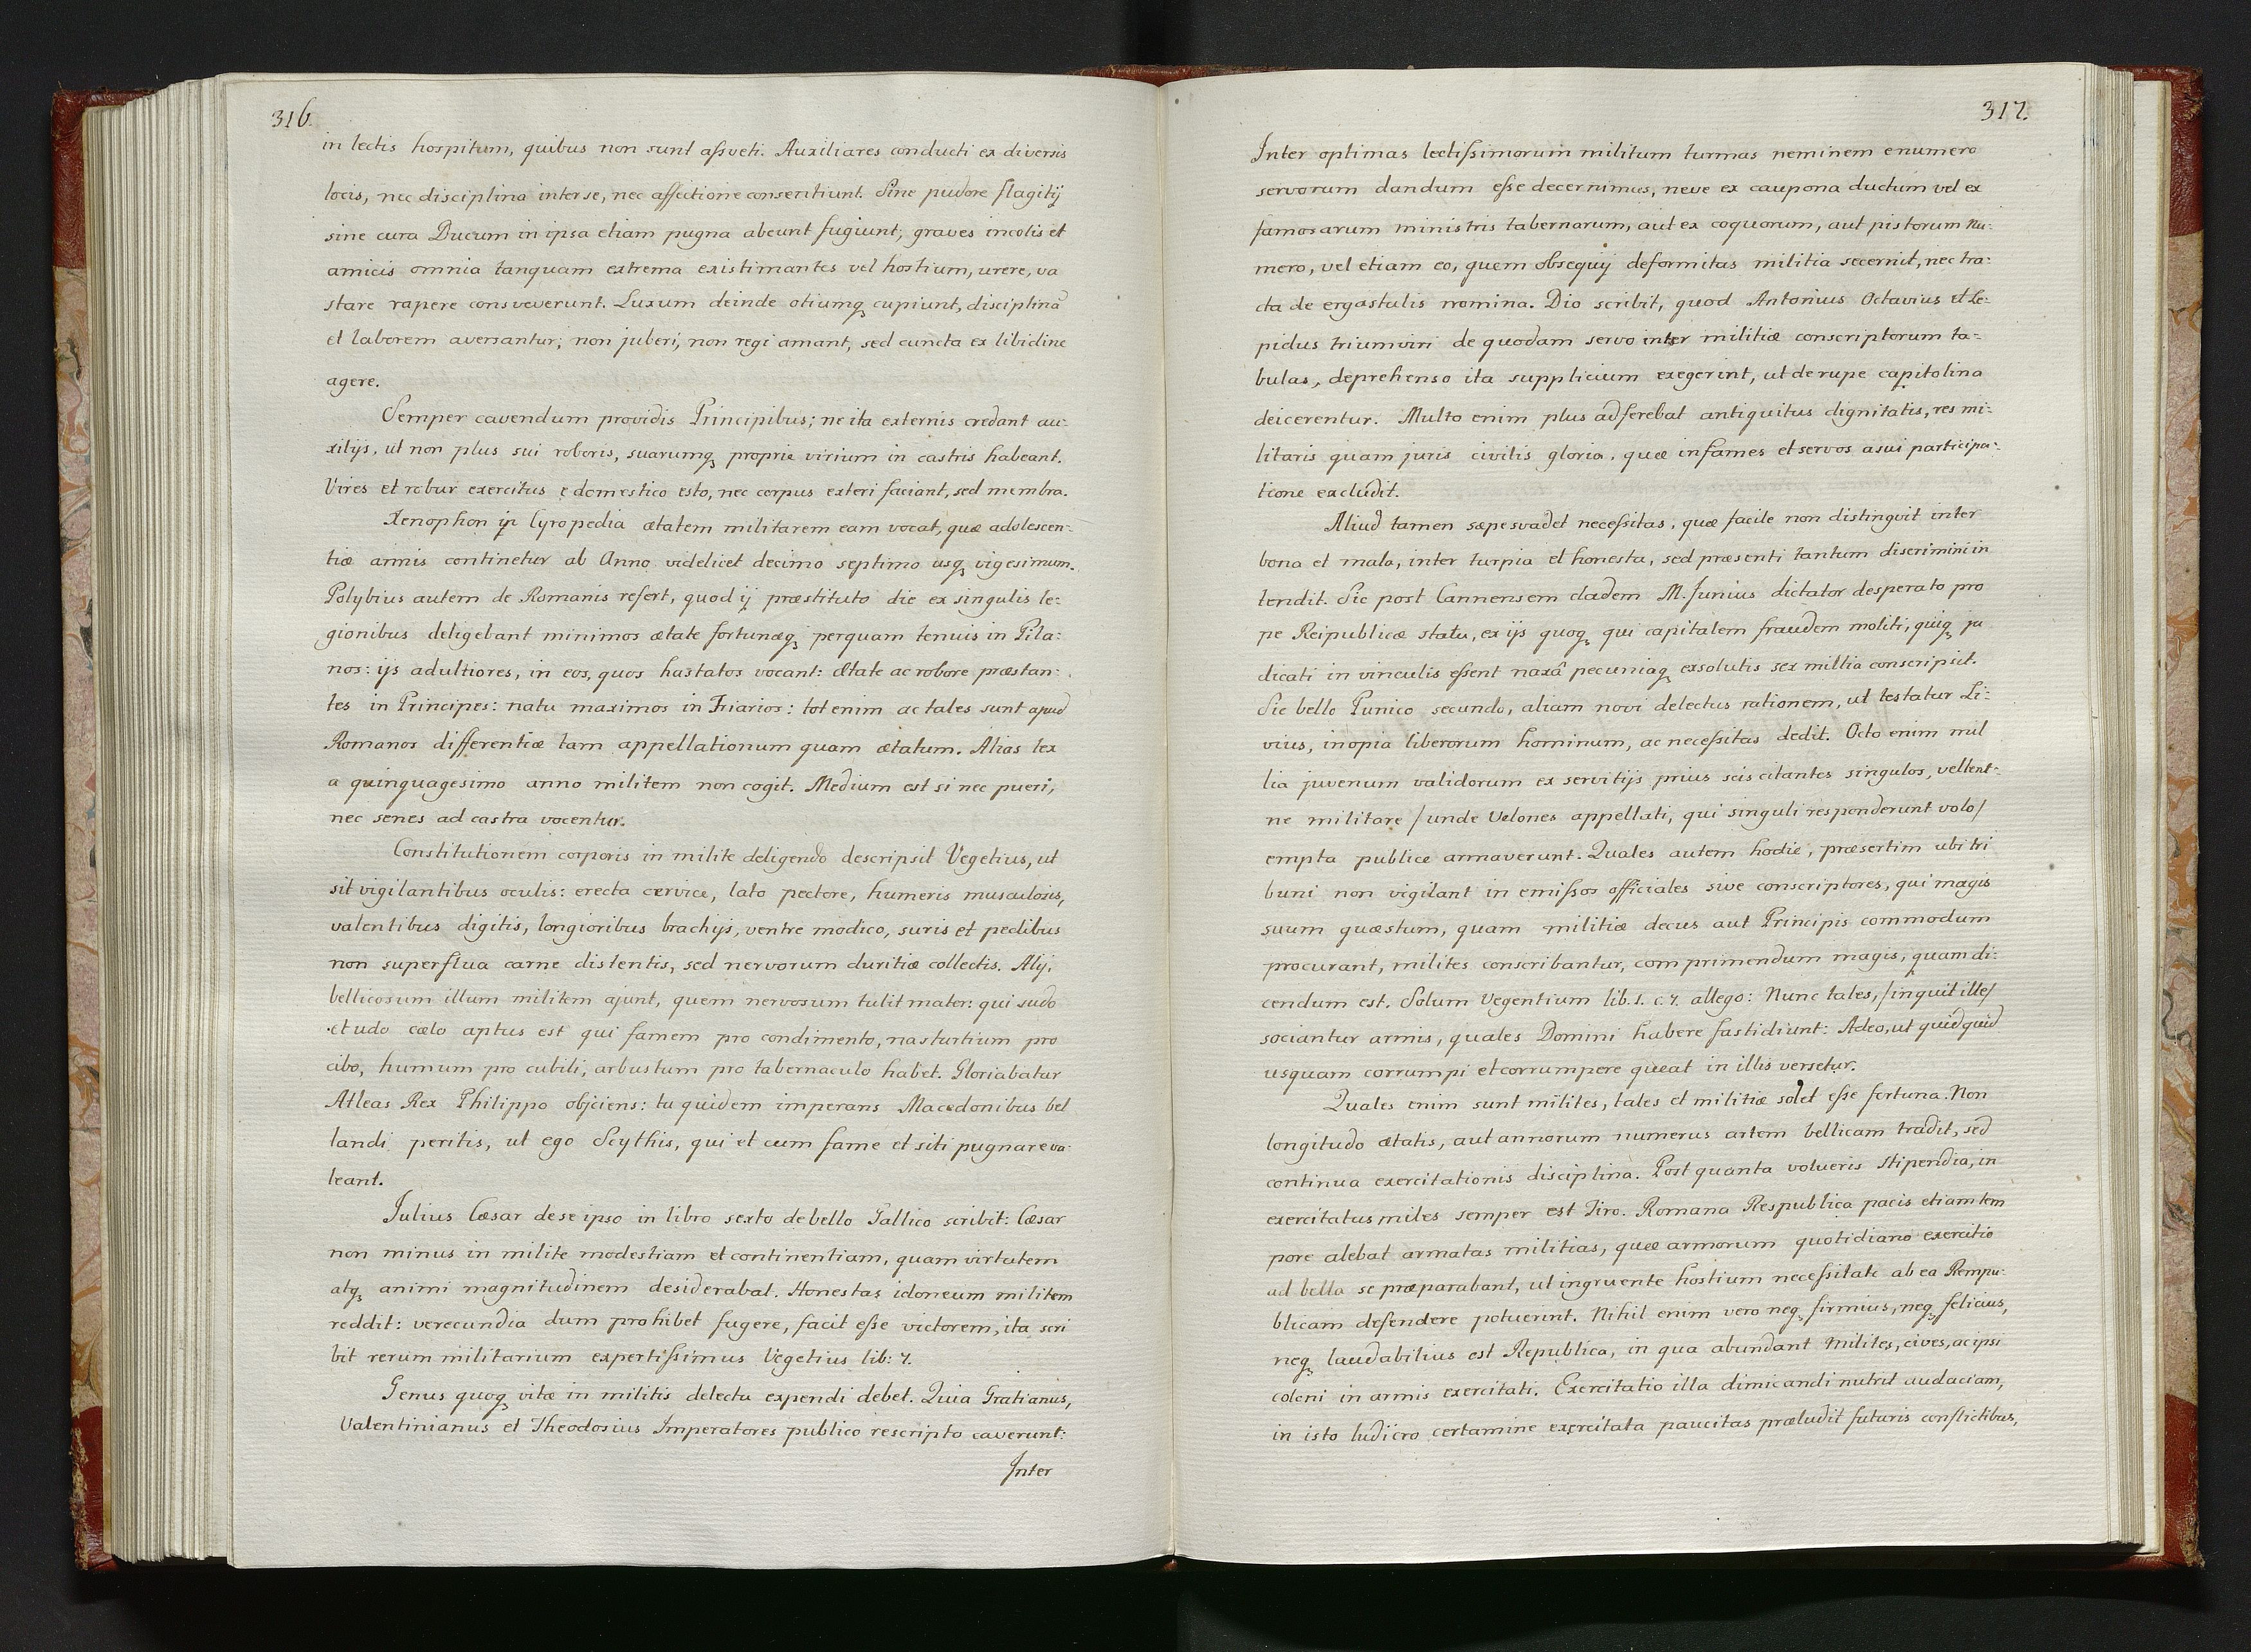 316.
in lectis hospitum, quibus non sunt aſsveti. Auxiliares conducti ex diversis
locis, nec disciplina inter se, nec affectione consentiunt. Sine pudore flagitij
sine cura Ducum in ipsa etiam pugna abeunt fugiunt; graves incolis et
amicis omnia tanquam extrema existimantes vel hostium, urere, va
stare rapere consveverunt. Luxum deinde otiumqꝫ cupiunt, disciplinã
et laborem aversantur; non juberi, non regi amant, sed cuncta ex libidine
agere.
Semper cavendum providis Principibus; ne ita externis credant au-
xilijs, ut non plus sui roboris, suarumqꝫ proprie virium in castris habeant.
Vires et robur exercitus e domestico esto, nec corpus exteri faciant, sed membra.
Xenophon in Cyropedia ætatem militarem eam vocat, quæ adolescen-
tiæ annis continetur ab Anno videlicet decimo septimo usqꝫ vigesimum.
Polybius autem de Romanis refert, quod ij præstituto die ex singulis le-
gionibus deligebant minimos ætate fortunæqꝫ perquam tenuis in Pila:
nos: ijs adultiores, in eos, quos hastatos vocant: Ætate ac robore præstan-
tes in Principes: natu maximos in Triarios: tot enim ac tales sunt apud
Romanos differentiæ tam appellationum quam ætatum. Alias lex
a quinquagesimo anno militem non cogit. Medium est si nec pueri,
nec senes ad castra vocentur.
Constitutionem corporis in milite deligendo descripsit Vegetius, ut
sit vigilantibus oculis: erecta cervice, lato pectore, humeris musculosis,
valentibus digitis, longioribus brachijs, ventre modico, suris et pedibus
non superflua carne distentis, sed nervorum duritiæ collectis. Alij,
bellicosum illum militem ajunt, quem nervosum tulit mater: qui sudo
et udo cælo aptus est qui famem pro condimento, nasturtium pro
cibo, humum pro cubili, arbustum pro tabernaculo habet. Gloriabatur
Atleas Rex Philippo objciens: tu quidem imperans Macedonibus bel
landi peritis, ut ego Scythis, qui et cum fame et siti pugnare va-
leant.
Julius Cæsar de se ipso in libro sexto de bello Gallico scribit: Cæsar
non minus in milite modestiam et continentiam, quam virtutem
atqꝫ animi magnitudinem desiderabat. Honestas idoneum militem
reddit: verecundia dum prohibet fugere, facit eſse victorem, ita scri
bit rerum militarium expertiſsimus Vegetius lib: 7.
Genus quoqꝫ vitæ in militis delectu expendi debet. Quia Gratianus,
Valentinianus et Theodosius Imperatores publico rescripto caverunt:
Inter
317.
Inter optimas lectiſsimorum militum turmas neminem e numero
servorum dandum eſse decernimus, neve ex caupona ductum vel ex
famosarum ministris tabernarum, aut ex coquorum, aut pistorum nu:
mero, vel etiam eo, quem obsequij deformitas militia secernit, nec tra:
cta de ergastulis nomina. Dio scribit, quod Antonius Octavius et Le:
pidus triumviri de quodam servo inter militiæ conscriptorum ta-
bulas, deprehenso ita supplicium exegerint, ut de rupe capitolina
deicerentur. Multo enim plus adferebat antiquitus dignitatis, res mi:
litaris quam juris civilis gloria, quæ infames et servos a sui participa:
tione excludit.
Aliud tamen sæpe svadet neceſsitas, quæ facile non distinguit inter
bona et mala, inter turpia et honesta, sed præsenti tantum discrimini in
tendit. Sic post Cannensem cladem M. Junius dictator desperato pro
pe Reipublicæ statu, ex ijs quoqꝫ qui capitalem fraudem moliti, quiqꝫ ju
dicati in vinculis eſsent naxâ pecuniaqꝫ exsolutis sex millia conscripsit.
Sic bello Punico secundo, aliam novi delectus rationem, ut testatur Li:
vius, inopia liberorum hominum, ac neceſsitas dedit. Octo enim mil
lia juvenum validorum ex servitijs prius sciscitantes singulos, vellent-
ne militare /unde Velones appellati, qui singuli responderunt volo/
empta publice armaverunt. Quales autem hodie, præsertim ubi tri
buni non vigilant in emiſsos officiales sive conscriptores, qui magis
suum quæstum, quam militiæ decus aut Principis commodum
procurant, milites conscribantur, comprimendum magis, quam di:
cendum est. Solum Vegentium lib. 1. c. 7. allego: Nunc tales, /inquit ille/
sociantur armis, quales Domini habere fastidiunt: Adeo, ut quidquid
usquam corrumpi et corrumpere queat in illis versetur.
Quales enim sunt milites, tales et militiæ solet eſse fortuna. Non
longitudo ætatis, aut annorum numerus artem bellicam tradit, sed
continua exercitationis disciplina. Post quanta volueris stipendia, in
exercitatus miles semper est Tiro. Romana Respublica pacis etiam tem
pore alebat armatas militias, quæ armorum quotidiano exercitio
ad bella se præparabant, ut ingruente hostium neceſsitate ab ea Rempu-
blicam defendere potuerint. Nihil enim vero neqꝫ firmius, neqꝫ felicius,
neqꝫ laudabilius est Republica, in qua abundant Milites, cives, ac ipsi
coloni in armis exercitati. Exercitatio illa dimicandi nutrit audaciam,
in isto ludicro certamine exercitata paucitas præludit futuris conflictibus,